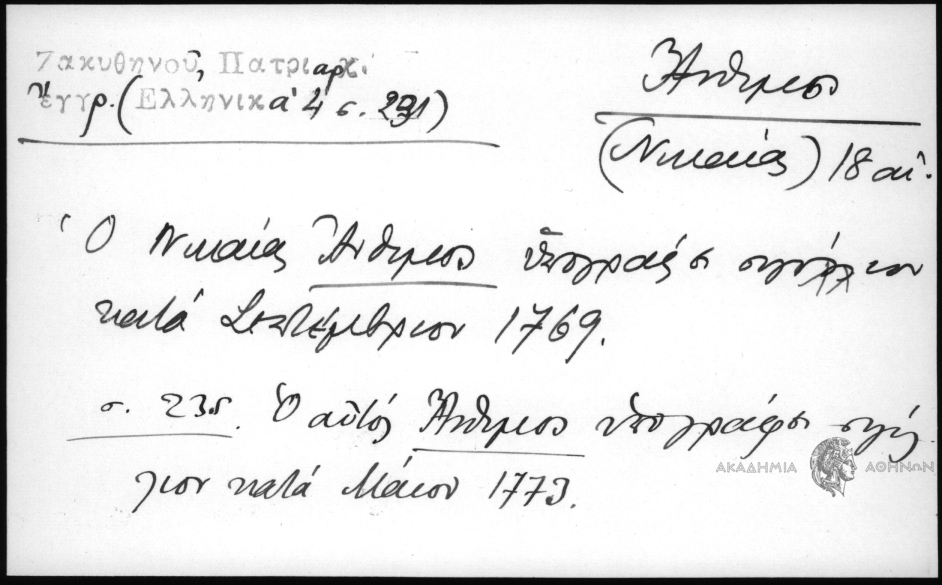 Ζακυθηνοῦ, Πατριαρχ.
ἔγγρ. (Ἑλληνικά 4 σ. 231)
Ἄνθιμος
(Νικαίας) 18 αἰ.
Ὁ Νικαίας Ἄνθιμος ὑπογράφει σιγίλλιον
κατά Σεπτέμβριον 1769.
σ. 235. Ὁ αὐτός Ἄνθιμος ὑπογράφει σιγίλ
λιον κατά Μάιον 1773.
ΑΚΑΔΗΜΙΑ ΑΘΗΝΩΝ